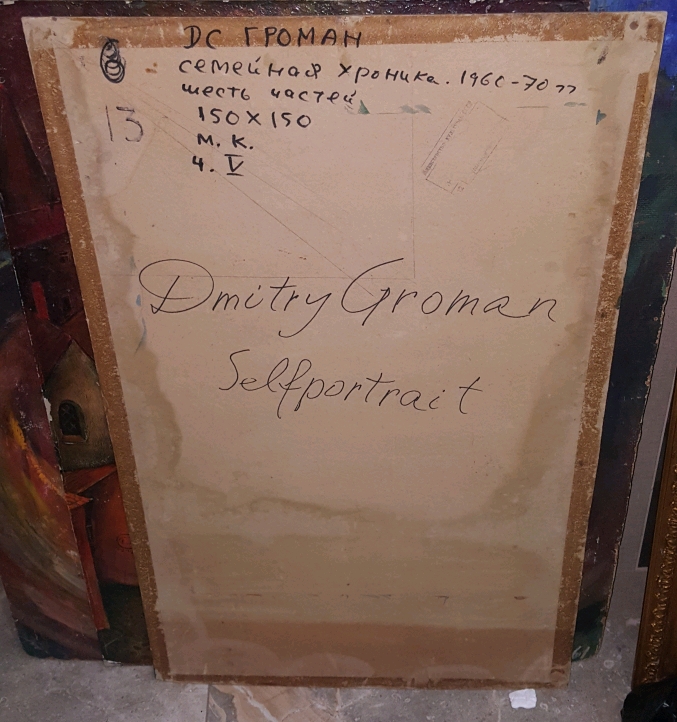 ДС ГРОМАН
семейная хроника. 1960-70 гг
шесть частей
150X150
м. к.
ч. V
13
Dmitry Groman
Selfportrait